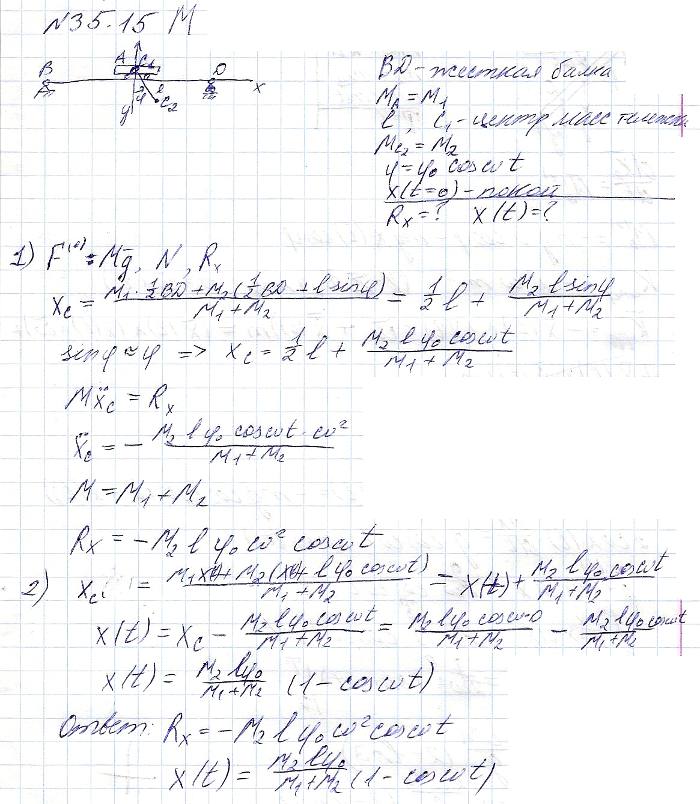 N35.15 М
A C1
B D x
φ l
y C2
BD - жесткая балка
M_A = M_1
l, C_1 - центр масс тележки
M_{C2} = M_2
φ = φ_0 cos ωt
x(t=0) - покой
R_x = ? x(t) = ?
1) F^{(e)}: M\bar{g}, N, R_x
x_c = \frac{M_1 · \frac{1}{2}BD + M_2(\frac{1}{2}BD + l sinφ)}{M_1 + M_2} = \frac{1}{2}l + \frac{M_2 l sinφ}{M_1 + M_2}
sinφ ≈ φ => x_c = \frac{1}{2}l + \frac{M_2 l φ_0 cosωt}{M_1 + M_2}
M\ddot{x}_c = R_x
\ddot{x}_c = - \frac{M_2 l φ_0 cosωt · ω^2}{M_1 + M_2}
M = M_1 + M_2
R_x = -M_2 l φ_0 ω^2 cosωt
2) x_c = \frac{M_1 x + M_2(x + l φ_0 cosωt)}{M_1 + M_2} = x(t) + \frac{M_2 l φ_0 cosωt}{M_1 + M_2}
x(t) = x_c - \frac{M_2 l φ_0 cosωt}{M_1 + M_2} = \frac{M_2 l φ_0 cosω·0}{M_1 + M_2} - \frac{M_2 l φ_0 cosωt}{M_1 + M_2}
x(t) = \frac{M_2 l φ_0}{M_1 + M_2} (1 - cosωt)
Ответ: R_x = -M_2 l φ_0 ω^2 cosωt
x(t) = \frac{M_2 l φ_0}{M_1 + M_2} (1 - cosωt)